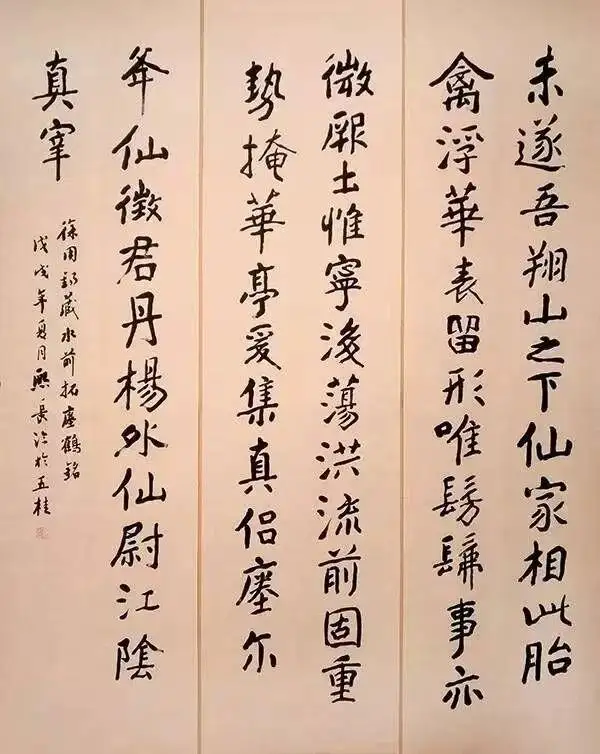 未遂吾翔山之下仙家相此胎
禽浮華表留形唯髣髴事亦
微厥土惟寧後蕩洪流前固重
勢掩華亭爰集真侶瘞尔
夅仙徵君丹楊外仙尉江陰
真宰
藏水前拓瘞鶴銘
戊戌年夏月熙長於五桂